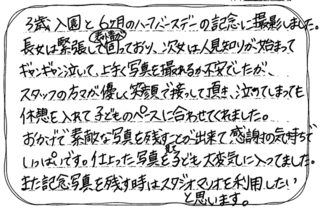 3歳入園と6ヶ月のハーフバースデーの記念に撮影しました。
長女は緊張して表情が固っており、次女は人見知りが始まって
ギャンギャン泣いて、上手く写真を撮れるか不安でしたが、
スタッフの方々が優しく笑顔で接して頂き、泣いてしまっても
休憩を入れて子どものペースに合わせてくれました。
おかげで素敵な写真を残すことが出来て感謝の気持ちで
いっぱいです。仕上った写真を見て子ども大変気に入ってました。
また記念写真を残す時はスタジオマリオを利用したい
と思います。